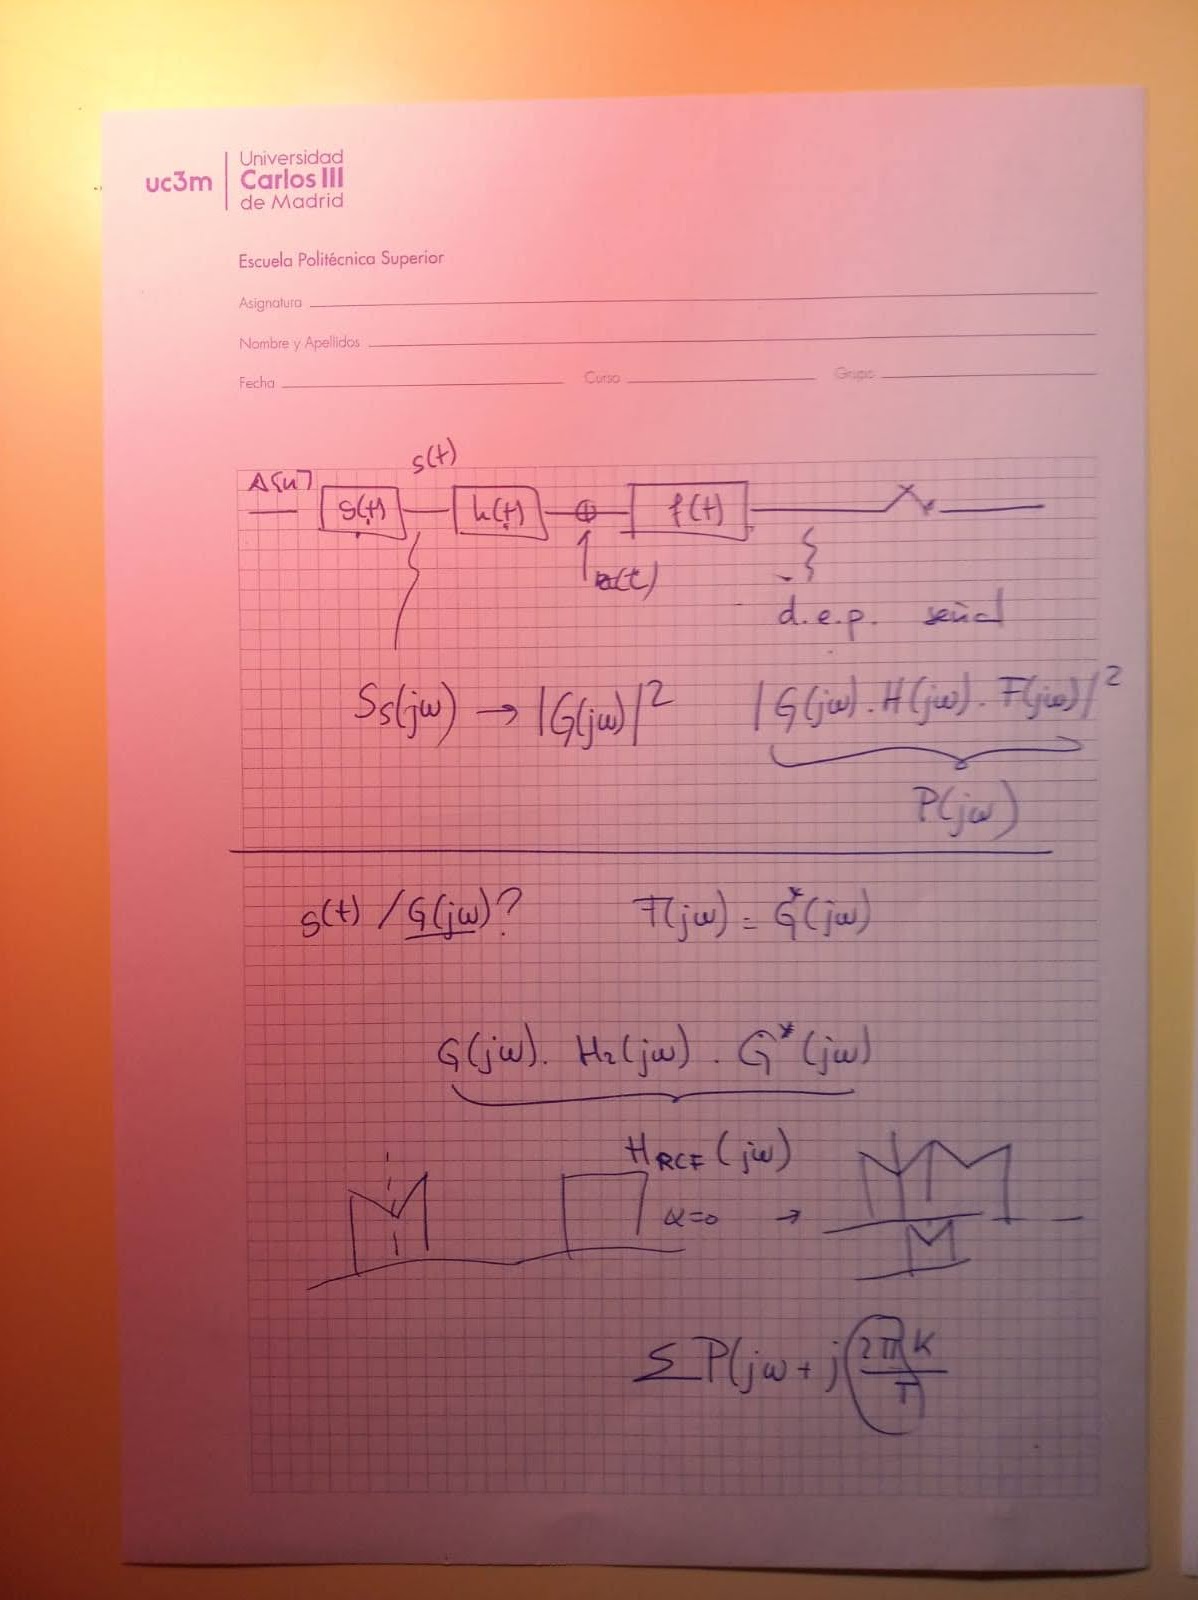 uc3m
Universidad
Carlos III
de Madrid
Escuela Politécnica Superior
Asignatura
Nombre y Apellidos
Fecha Curso Grupo
s(t)
A[n] g(t) h(t) ⊕ f(t)
(t)
d.e.p. señal
Ss(jω) → |G(jω)|² |G(jω) . H(jω) . F(jω)|²
P(jω)
g(t) / G(jω)? F(jω) = G*(jω)
G(jω) . H₂(jω) . G*(jω)
H_RCF (jω)
α=0 →
Σ P(jω + j 2πk/T